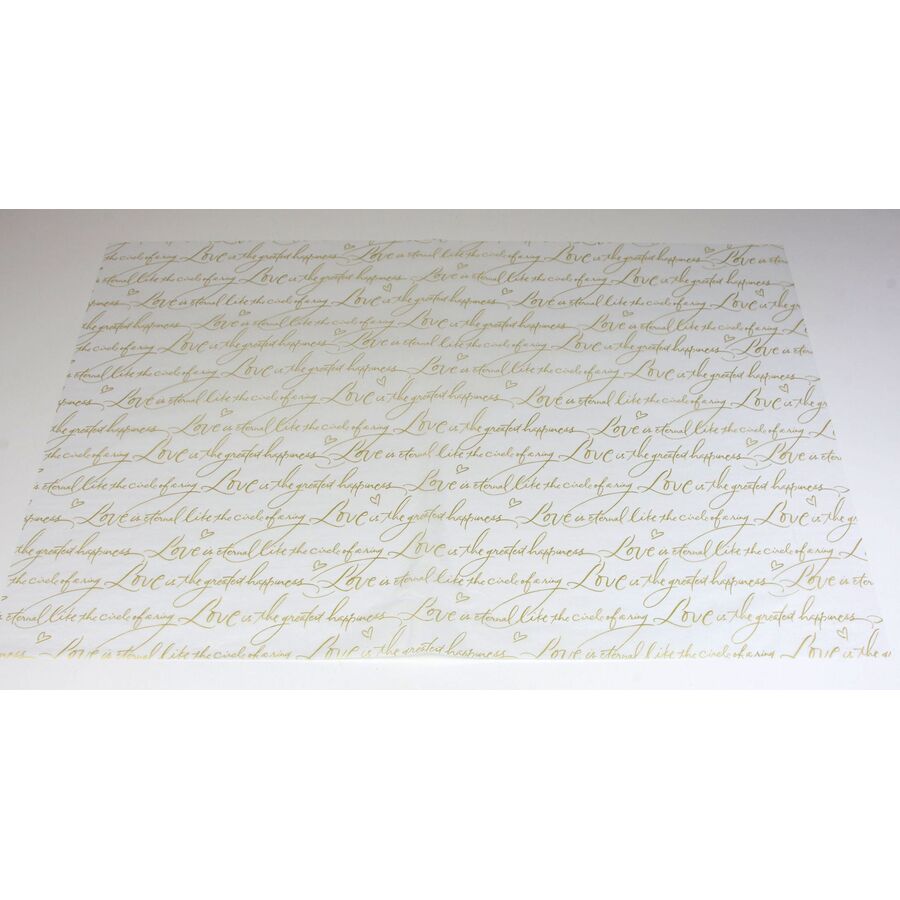 the circle of a ring Love is the greatest happiness Love is eternal like the circle of a ring Love is the greatest happiness Love is eternal
s eternal like the circle of a ring Love is the greatest happiness Love is eternal like the circle of a ring Love is the greatest happiness
happiness Love is eternal like the circle of a ring Love is the greatest happiness Love is eternal like the circle of a ring Love is the g
the greatest happiness Love is eternal like the circle of a ring Love is the greatest happiness Love is eternal like the circle of a ring L
the circle of a ring Love is the greatest happiness Love is eternal like the circle of a ring Love is the greatest happiness Love is eter
s eternal like the circle of a ring Love is the greatest happiness Love is eternal like the circle of a ring Love is the greatest happiness
ppiness Love is eternal like the circle of a ring Love is the greatest happiness Love is eternal like the circle of a ring Love is the g
the greatest happiness Love is eternal like the circle of a ring Love is the greatest happiness Love is eternal like the circle of a ring L
the circle of a ring Love is the greatest happiness Love is eternal like the circle of a ring Love is the greatest happiness Love is eter
s eternal like the circle of a ring Love is the greatest happiness Love is eternal like the circle of a ring Love is the greatest happiness
ppiness Love is eternal like the circle of a ring Love is the greatest happiness Love is eternal like the circle of a ring Love is the g
the greatest happiness Love is eternal like the circle of a ring Love is the greatest happiness Love is eternal like the circle of a ring L
the circle of a ring Love is the greatest happiness Love is eternal like the circle of a ring Love is the greatest happiness Love is eter
s eternal like the circle of a ring Love is the greatest happiness Love is eternal like the circle of a ring Love is the greatest happiness
iness Love is eternal like the circle of a ring Love is the greatest happiness Love is eternal like the circle of a ring Love is the g